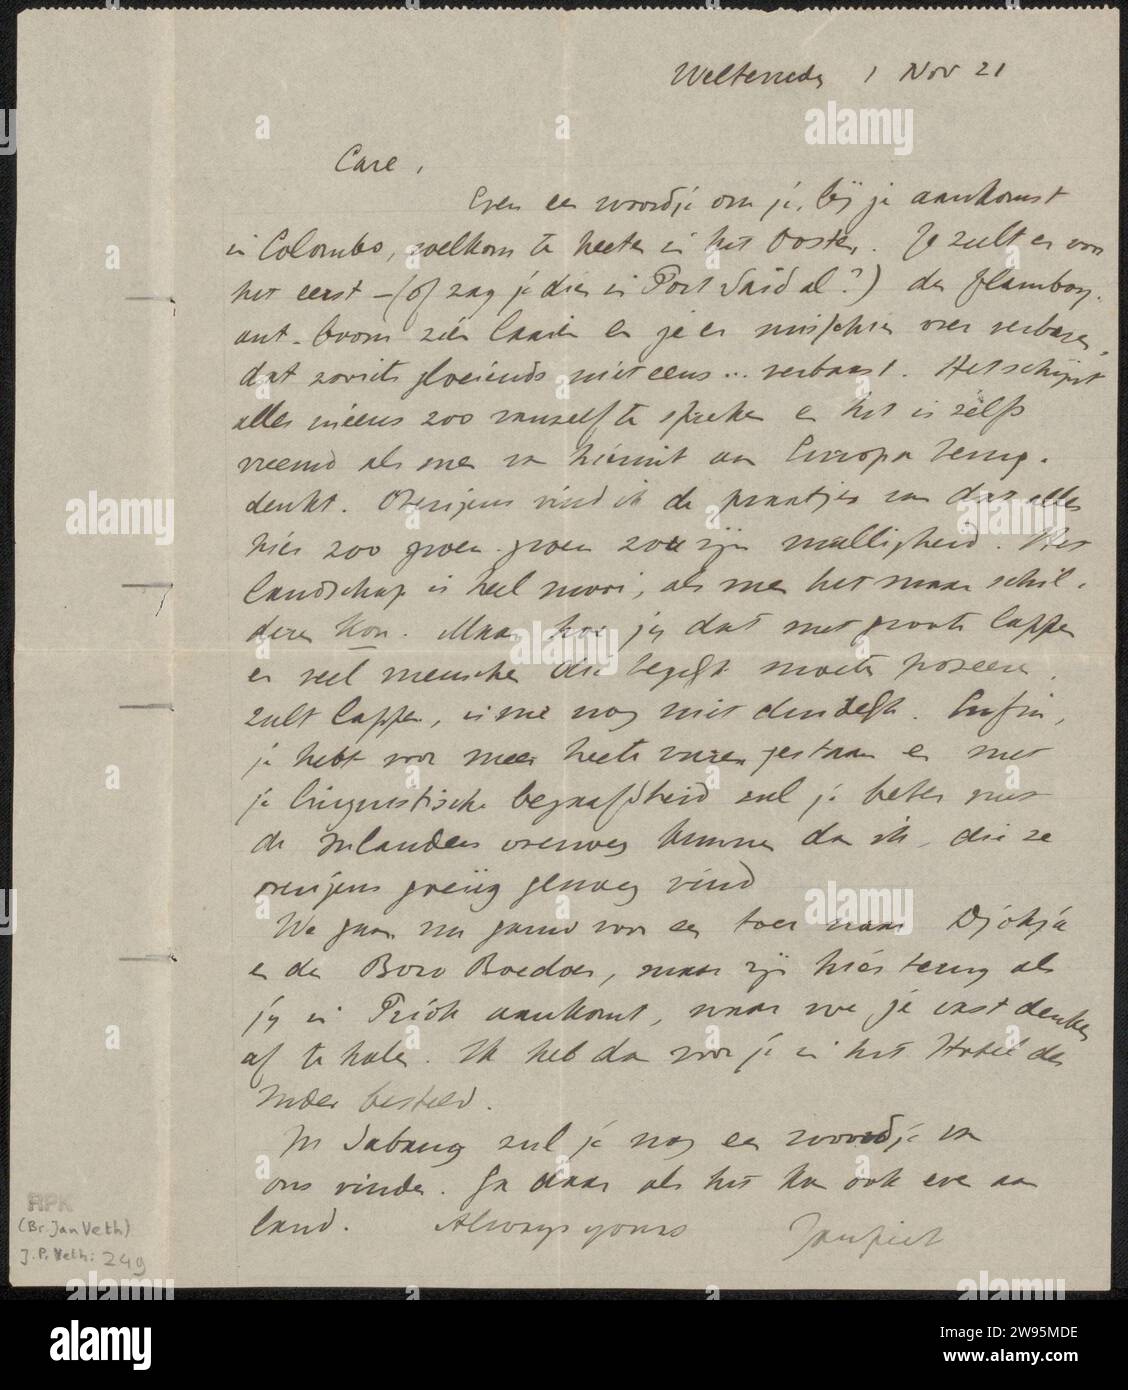 Weltevreden 1 Nov 21
Care,
Even een woordje om je, bij je aankomst
in Colombo, welkom te heeten in het Oosten. Je zult er voor
het eerst – (of zag je dien in Port Saïd al?) den flamboy-
ant-boom zien laaien en je er misschien over verbazen,
dat zooiets gloeiends niet eens ... verbaast. Het schijnt
alles ineens zoo vanzelf te spreken en het is zelfs
vreemd als men van hieruit aan Europa terug-
denkt. Overigens vind ik de praatjes van dat alles
hier zoo groen-groen zou zijn malligheid. Het
landschap is heel mooi, als men het maar schil-
deren kon. Maar hoe jij dat met groote lappen
en veel menschen die begrijpt moeten poseeren,
zult lappen, is me nog niet duidelijk. Enfin,
je hebt voor meer heete vuren gestaan en met
je linguistische begaafdheid zul je beter met
de Inlanders overweg kunnen dan ik, die ze
overigens greijig genoeg vind
We gaan nu gauw voor een toer naar Djokja
en den Boro Boedoer, maar zijn hier terug als
jij in Priok aankomt, waar we je vast denken
af te halen. Ik heb dan voor je in het Hotel des
Indes besteld.
In Sabang zul je nog een woordje van
ons vinden. Ga daar als het kan ook even aan
land. Always yours Janpiet
RPK
(Br. Jan Veth)
J.P. Veth: 249
alamy
Image ID: 2W95MDE
www.alamy.com